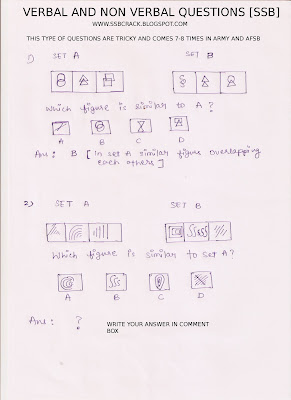 VERBAL AND NON VERBAL QUESTIONS [SSB]
WWW.SSBCRACK.BLOGSPOT.COM
THIS TYPE OF QUESTIONS ARE TRICKY AND COMES 7-8 TIMES IN ARMY AND AFSB
1) SET A SET B
Which figure is similar to A ?
A B C D
Ans : B [ In set A similar figure overlapping
each others ]
2) SET A SET B
Which figure is similar to set A ?
A B C D
Ans : ?
WRITE YOUR ANSWER IN COMMENT
BOX